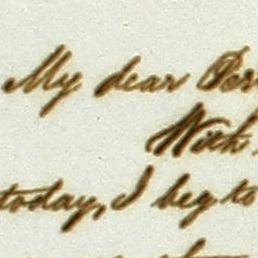 My dear Per
With
today, I beg to